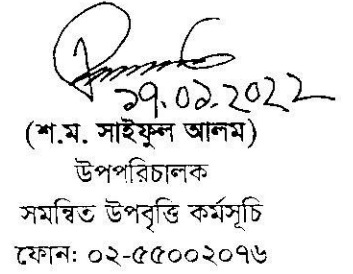 ১৭.০১.২০২২
(শ.ম. সাইফুল আলম)
উপপরিচালক
সমন্বিত উপবৃত্তি কর্মসূচি
ফোন: ০২-৫৫০০২০৭৬